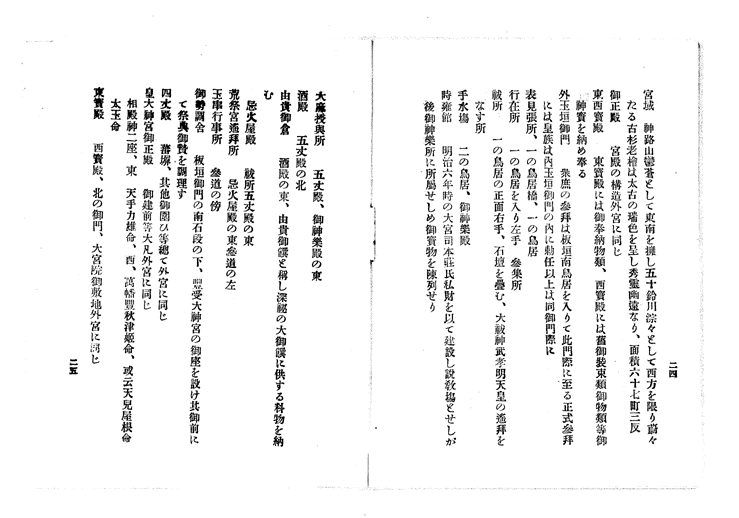 宮城　神路山鬱蒼として東南を擁し五十鈴川淙々として西方を限り蔚々
たる古杉老檜は太古の瑞色を呈し秀靈幽邃なり、面積六十七町三反
御正殿　宮殿の構造外宮に同じ
東西寶殿　東寶殿には御奉納物類、西寶殿には舊御裝束類御物類等御
神寶を納め奉る
外玉垣御門　衆庶の參拜は板垣南鳥居を入りて此門際に至る正式參拜
には皇族は內玉垣御門の內に勅任以上は同御門際に
表見張所、一の鳥居橋、一の鳥居
行在所　一の鳥居を入り左手　參集所
祓所　一の鳥居の正面右手、石壇を疊む、大祓神武孝明天皇の遙拜を
なす所
手水場　二の鳥居、御神樂殿
時雍館　明治六年時の大宮司本莊氏私財を以て建設し說敎塲とせしが
後御神樂所に所屬せしめ御寶物を陳列せり
二四
大麻授與所　五丈殿、御神樂殿の東
酒殿　五丈殿の北
由貴御倉　酒殿の東、由貴御饌と稱し深祕の大御饌に供する料物を納
む
忌火屋殿　祓所五丈殿の東
荒祭宮遙拜所　忌火屋殿の東參道の左
玉串行事所　參道の傍
御勢調舍　板垣御門の南石段の下、豐受大神宮の御座を設け其御前に
て祭典御贄を調理す
四丈殿　蕃塀、其他御圍ひ等總て外宮に同じ
皇大神宮御正殿　御建前等大凡外宮に同じ
相殿神二座、東　天手力雄命、西、萬幡豐秋津姬命、或云天兒屋根命
太玉命
東寶殿　西寶殿、北の御門、大宮院御敷地外宮に同じ
二五